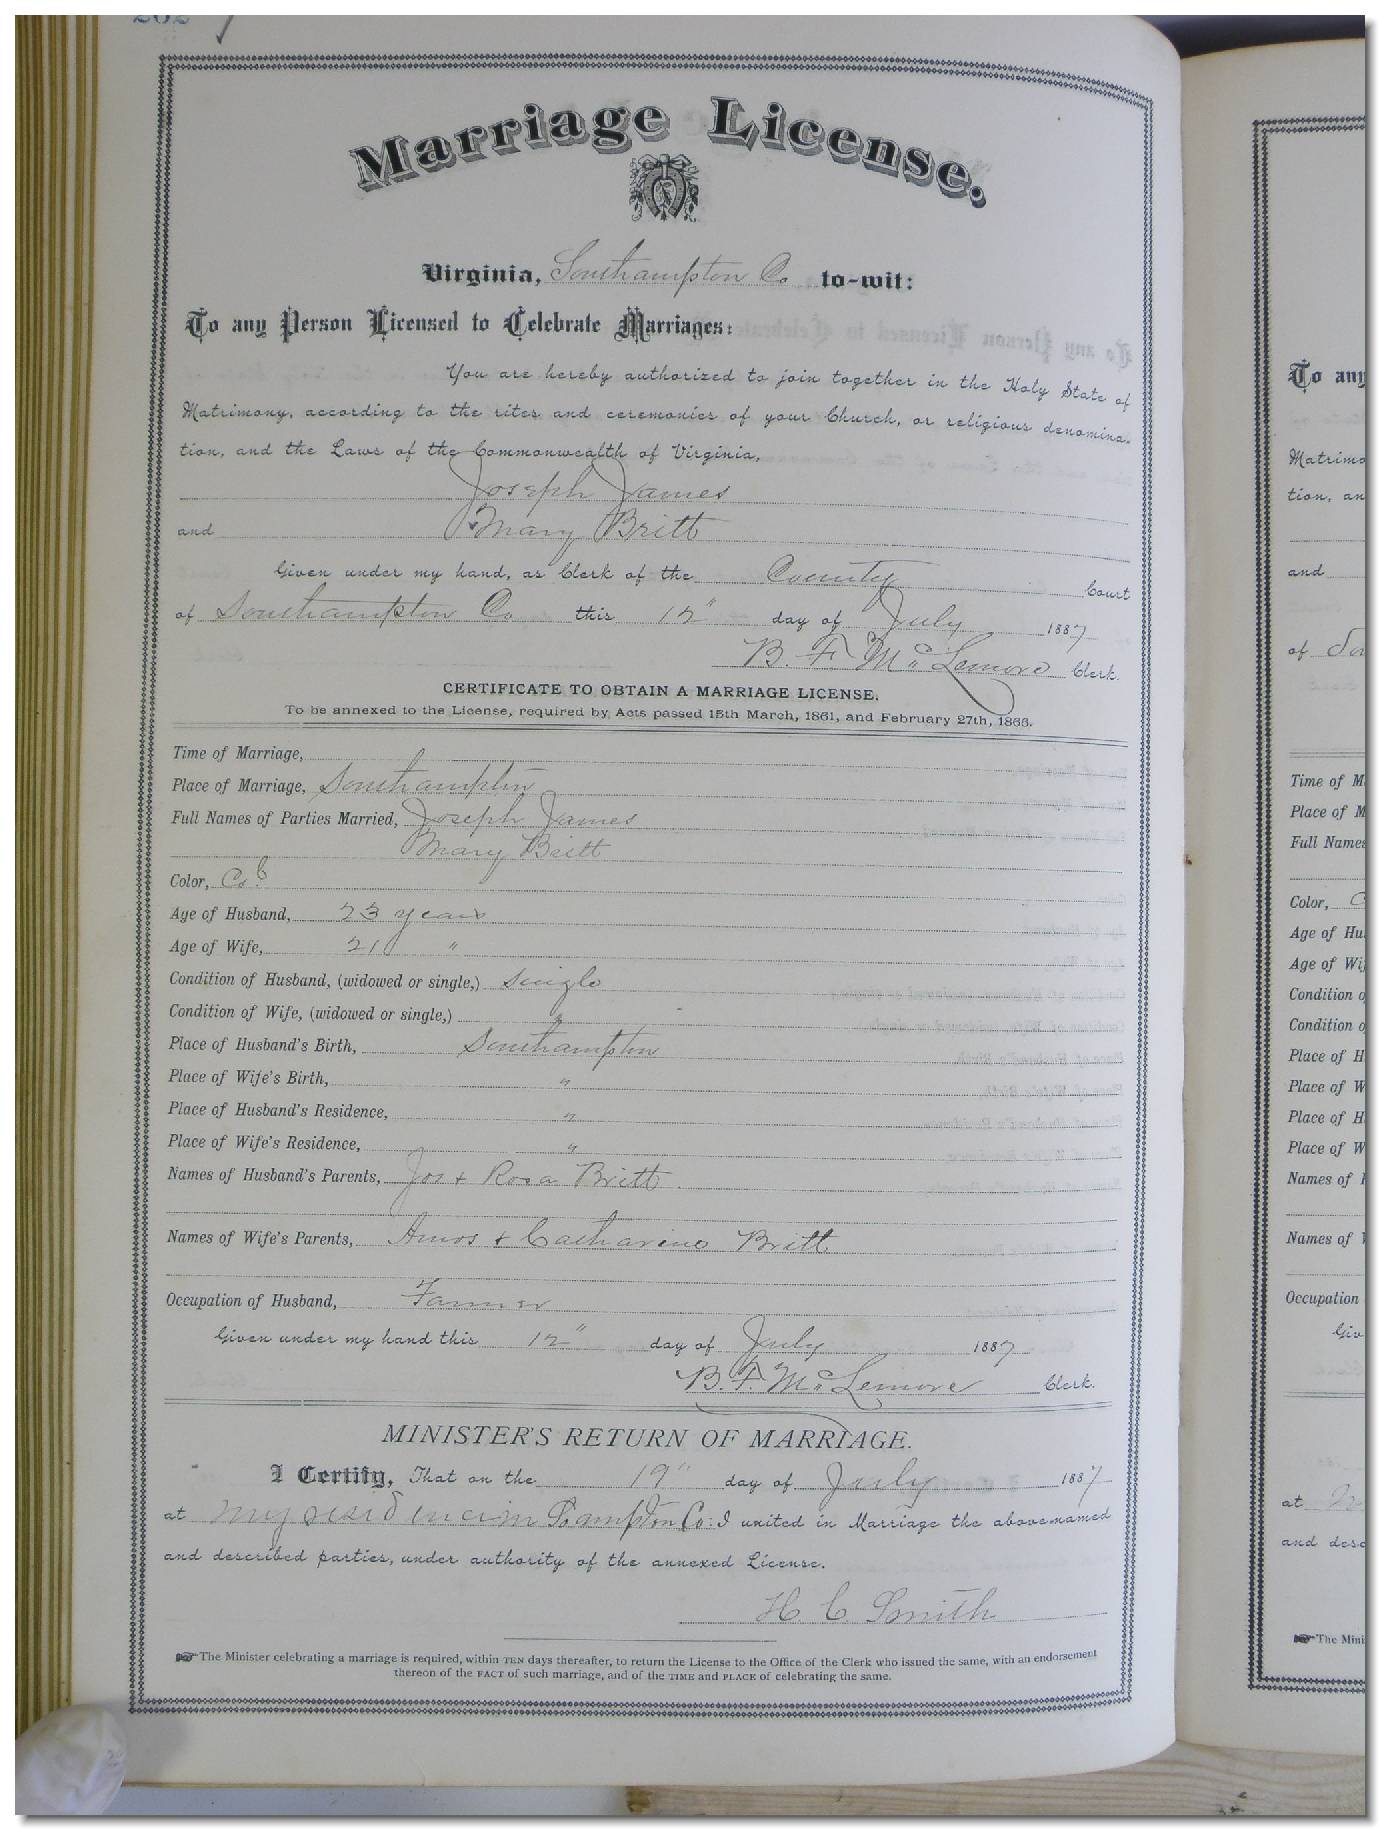 262
Marriage License.
Virginia, Southampton Co to-wit:
To any Person Licensed to Celebrate Marriages:
You are hereby authorized to join together in the Holy State of
Matrimony, according to the rites and ceremonies of your Church, or religious denomina-
tion, and the Laws of the Commonwealth of Virginia,
Joseph James
and Mary Britt
Given under my hand, as Clerk of the County Court
of Southampton Co this 12" day of July 1887
B. F. McLemore Clerk.
CERTIFICATE TO OBTAIN A MARRIAGE LICENSE.
To be annexed to the License, required by Acts passed 15th March, 1861, and February 27th, 1866.
Time of Marriage,
Place of Marriage, Southampton
Full Names of Parties Married, Joseph James
Mary Britt
Color, Col
Age of Husband, 23 years
Age of Wife, 21 "
Condition of Husband, (widowed or single,) Single
Condition of Wife, (widowed or single,) "
Place of Husband's Birth, Southampton
Place of Wife's Birth, "
Place of Husband's Residence, "
Place of Wife's Residence, "
Names of Husband's Parents, Jos + Rosa Britt.
Names of Wife's Parents, Amos + Catharine Britt
Occupation of Husband, Farmer
Given under my hand this 12" day of July 1887
B. F. McLemore Clerk.
MINISTER'S RETURN OF MARRIAGE.
I Certify, That on the 19" day of July 1887
at my residence in Co: I united in Marriage the above-named
and described parties, under authority of the annexed License.
H C Smith
The Minister celebrating a marriage is required, within TEN days thereafter, to return the License to the Office of the Clerk who issued the same, with an endorsement
thereon of the FACT of such marriage, and of the TIME and PLACE of celebrating the same.
To any
Matrimo
tion, an
and
of Sou
Time of M
Place of M
Full Names
Color, C
Age of Hu
Age of Wif
Condition o
Condition o
Place of H
Place of W
Place of H
Place of W
Names of H
Names of W
Occupation
Giv
at
and desc
The Mini